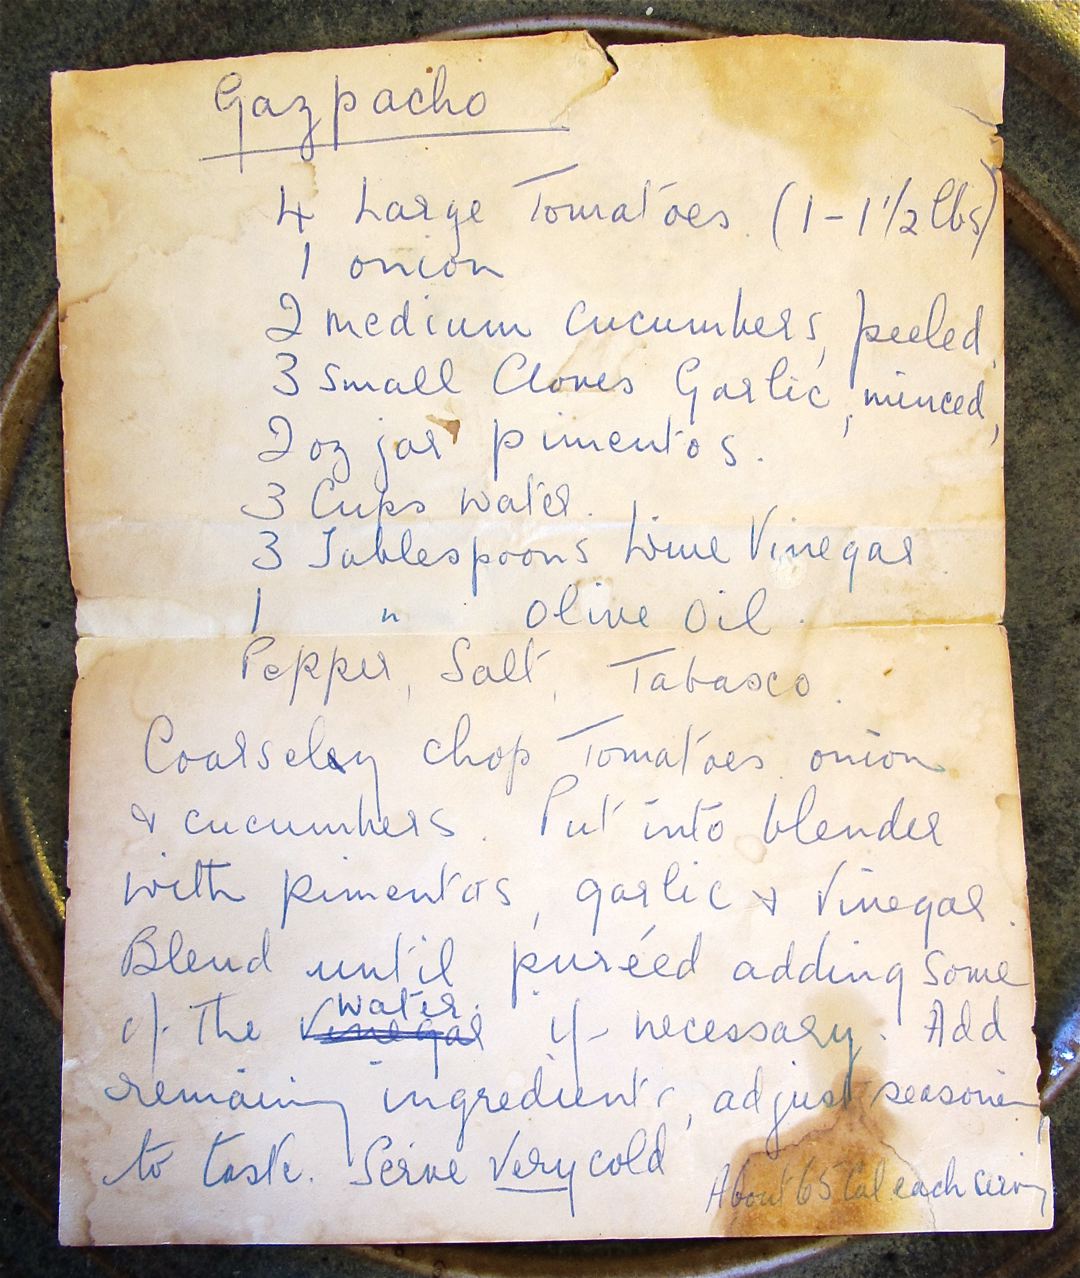 Gazpacho
4 Large Tomatoes. (1-1 1/2 lbs)
1 onion
2 medium cucumbers, peeled,
3 small Cloves Garlic, minced,
2 oz jar pimentos.
3 Cups water.
3 Tablespoons Wine Vinegar
1 " Olive Oil.
Pepper, Salt, Tabasco.
Coarsely chop Tomatoes. onion
& cucumbers. Put into blender
with pimentos, garlic & Vinegar.
Blend until puréed adding some
water.
of the vinegar if necessary. Add
remaining ingredients, adjust seasoning
to taste. Serve very cold
About 65 Cal each serving